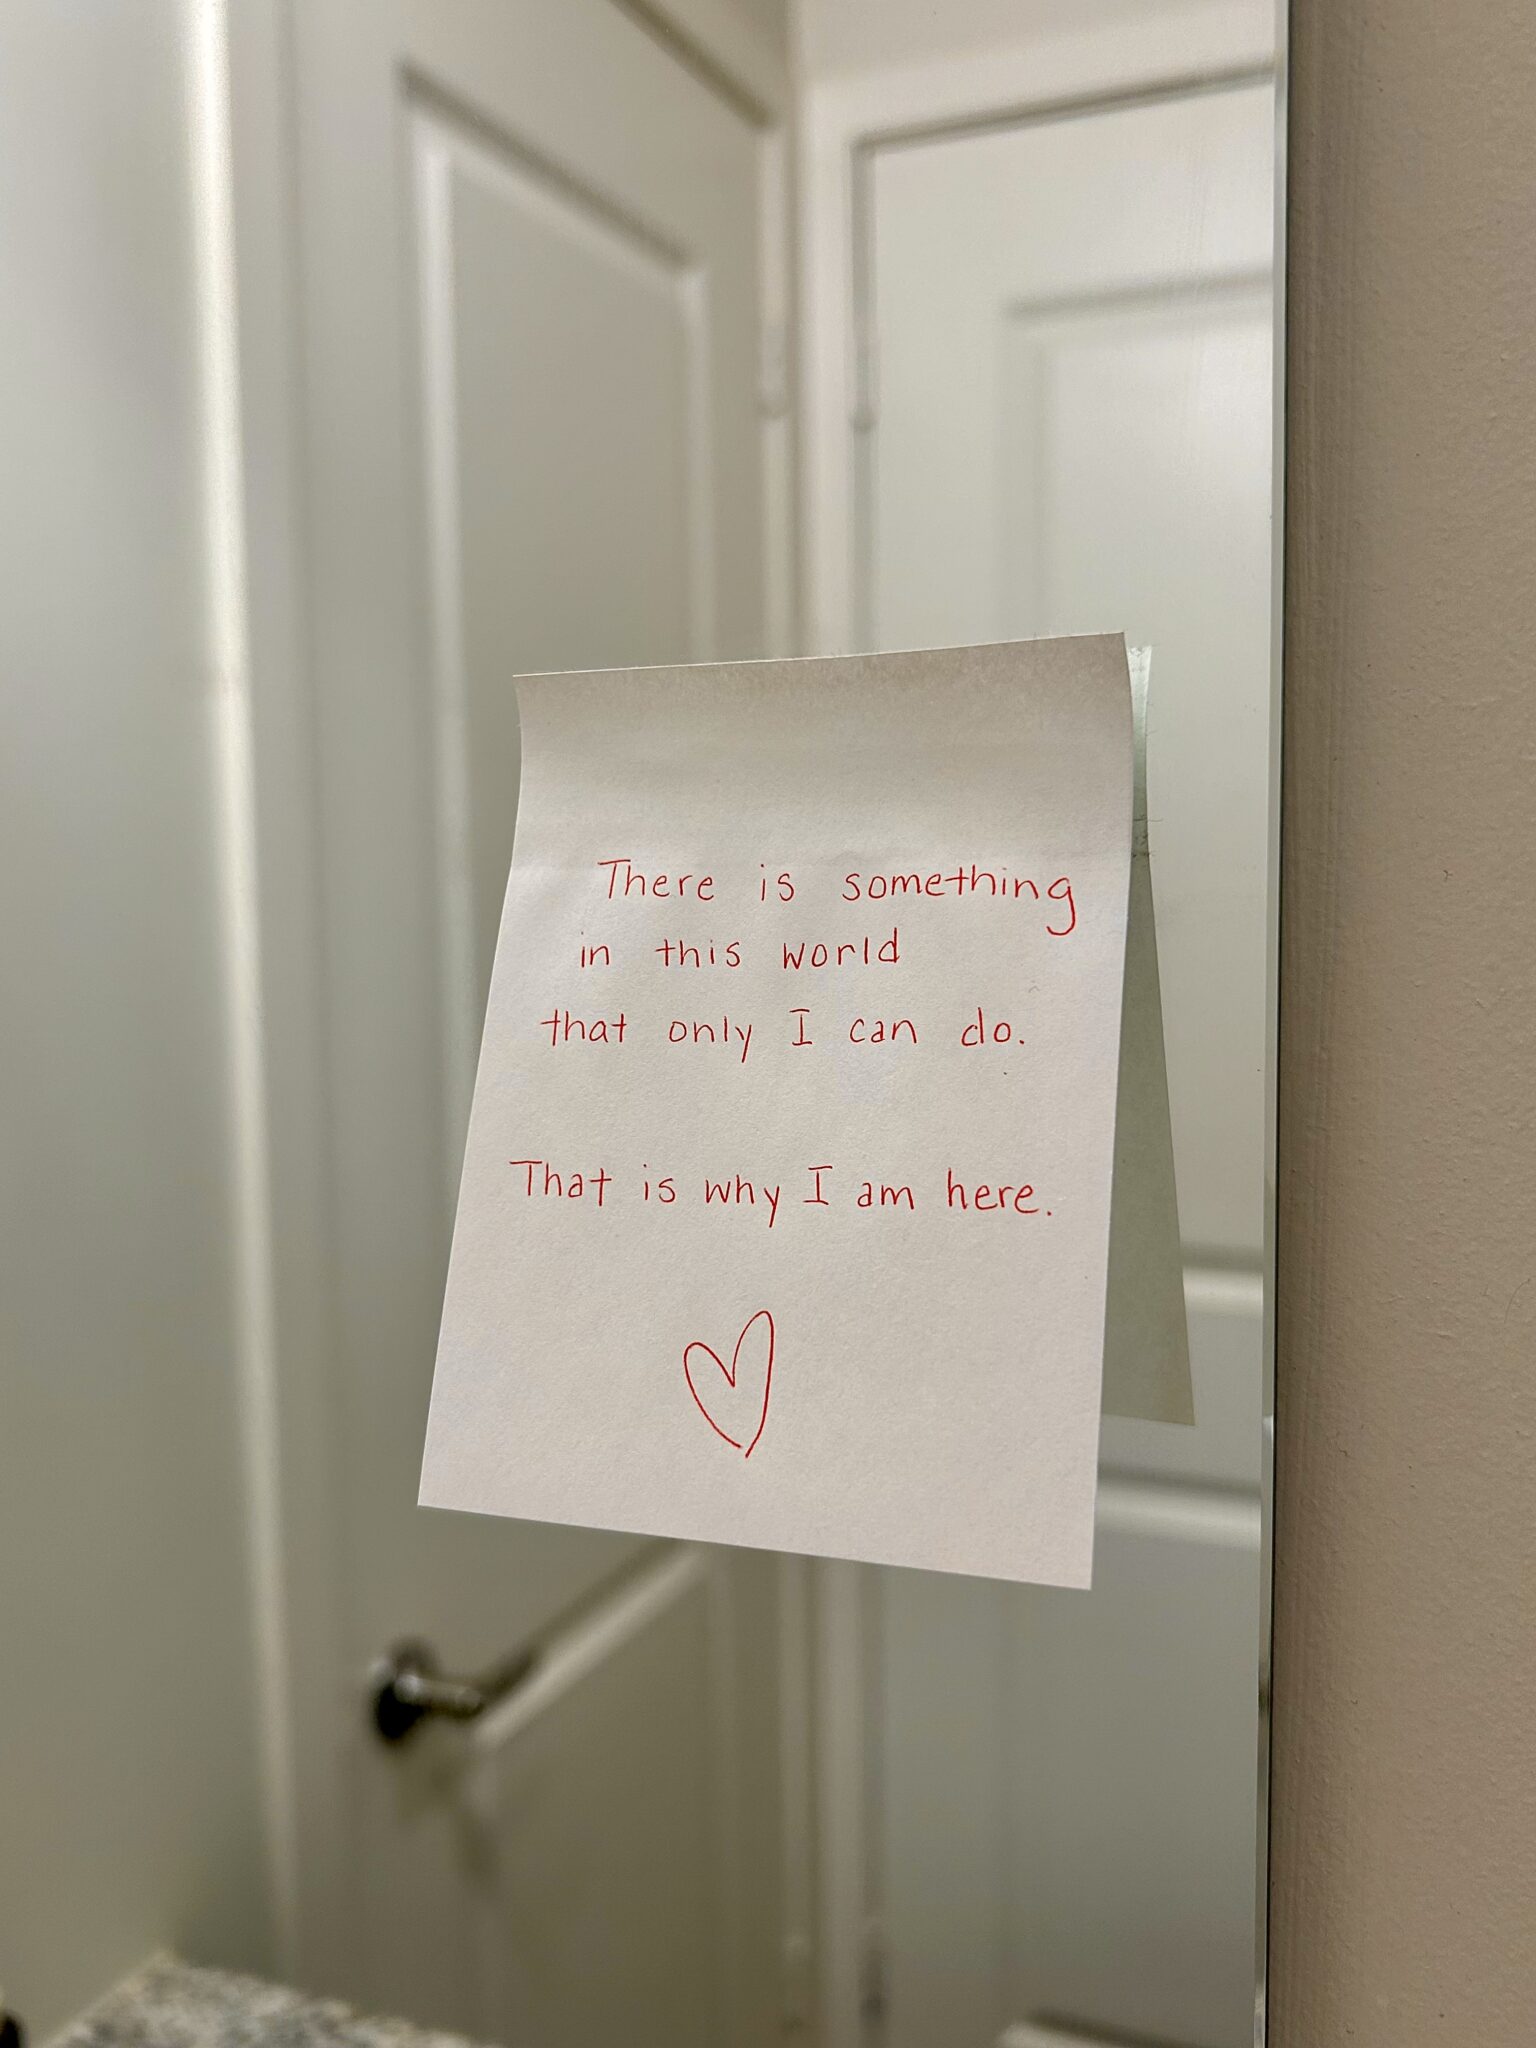 There is something
in this world
that only I can do.
That is why I am here.